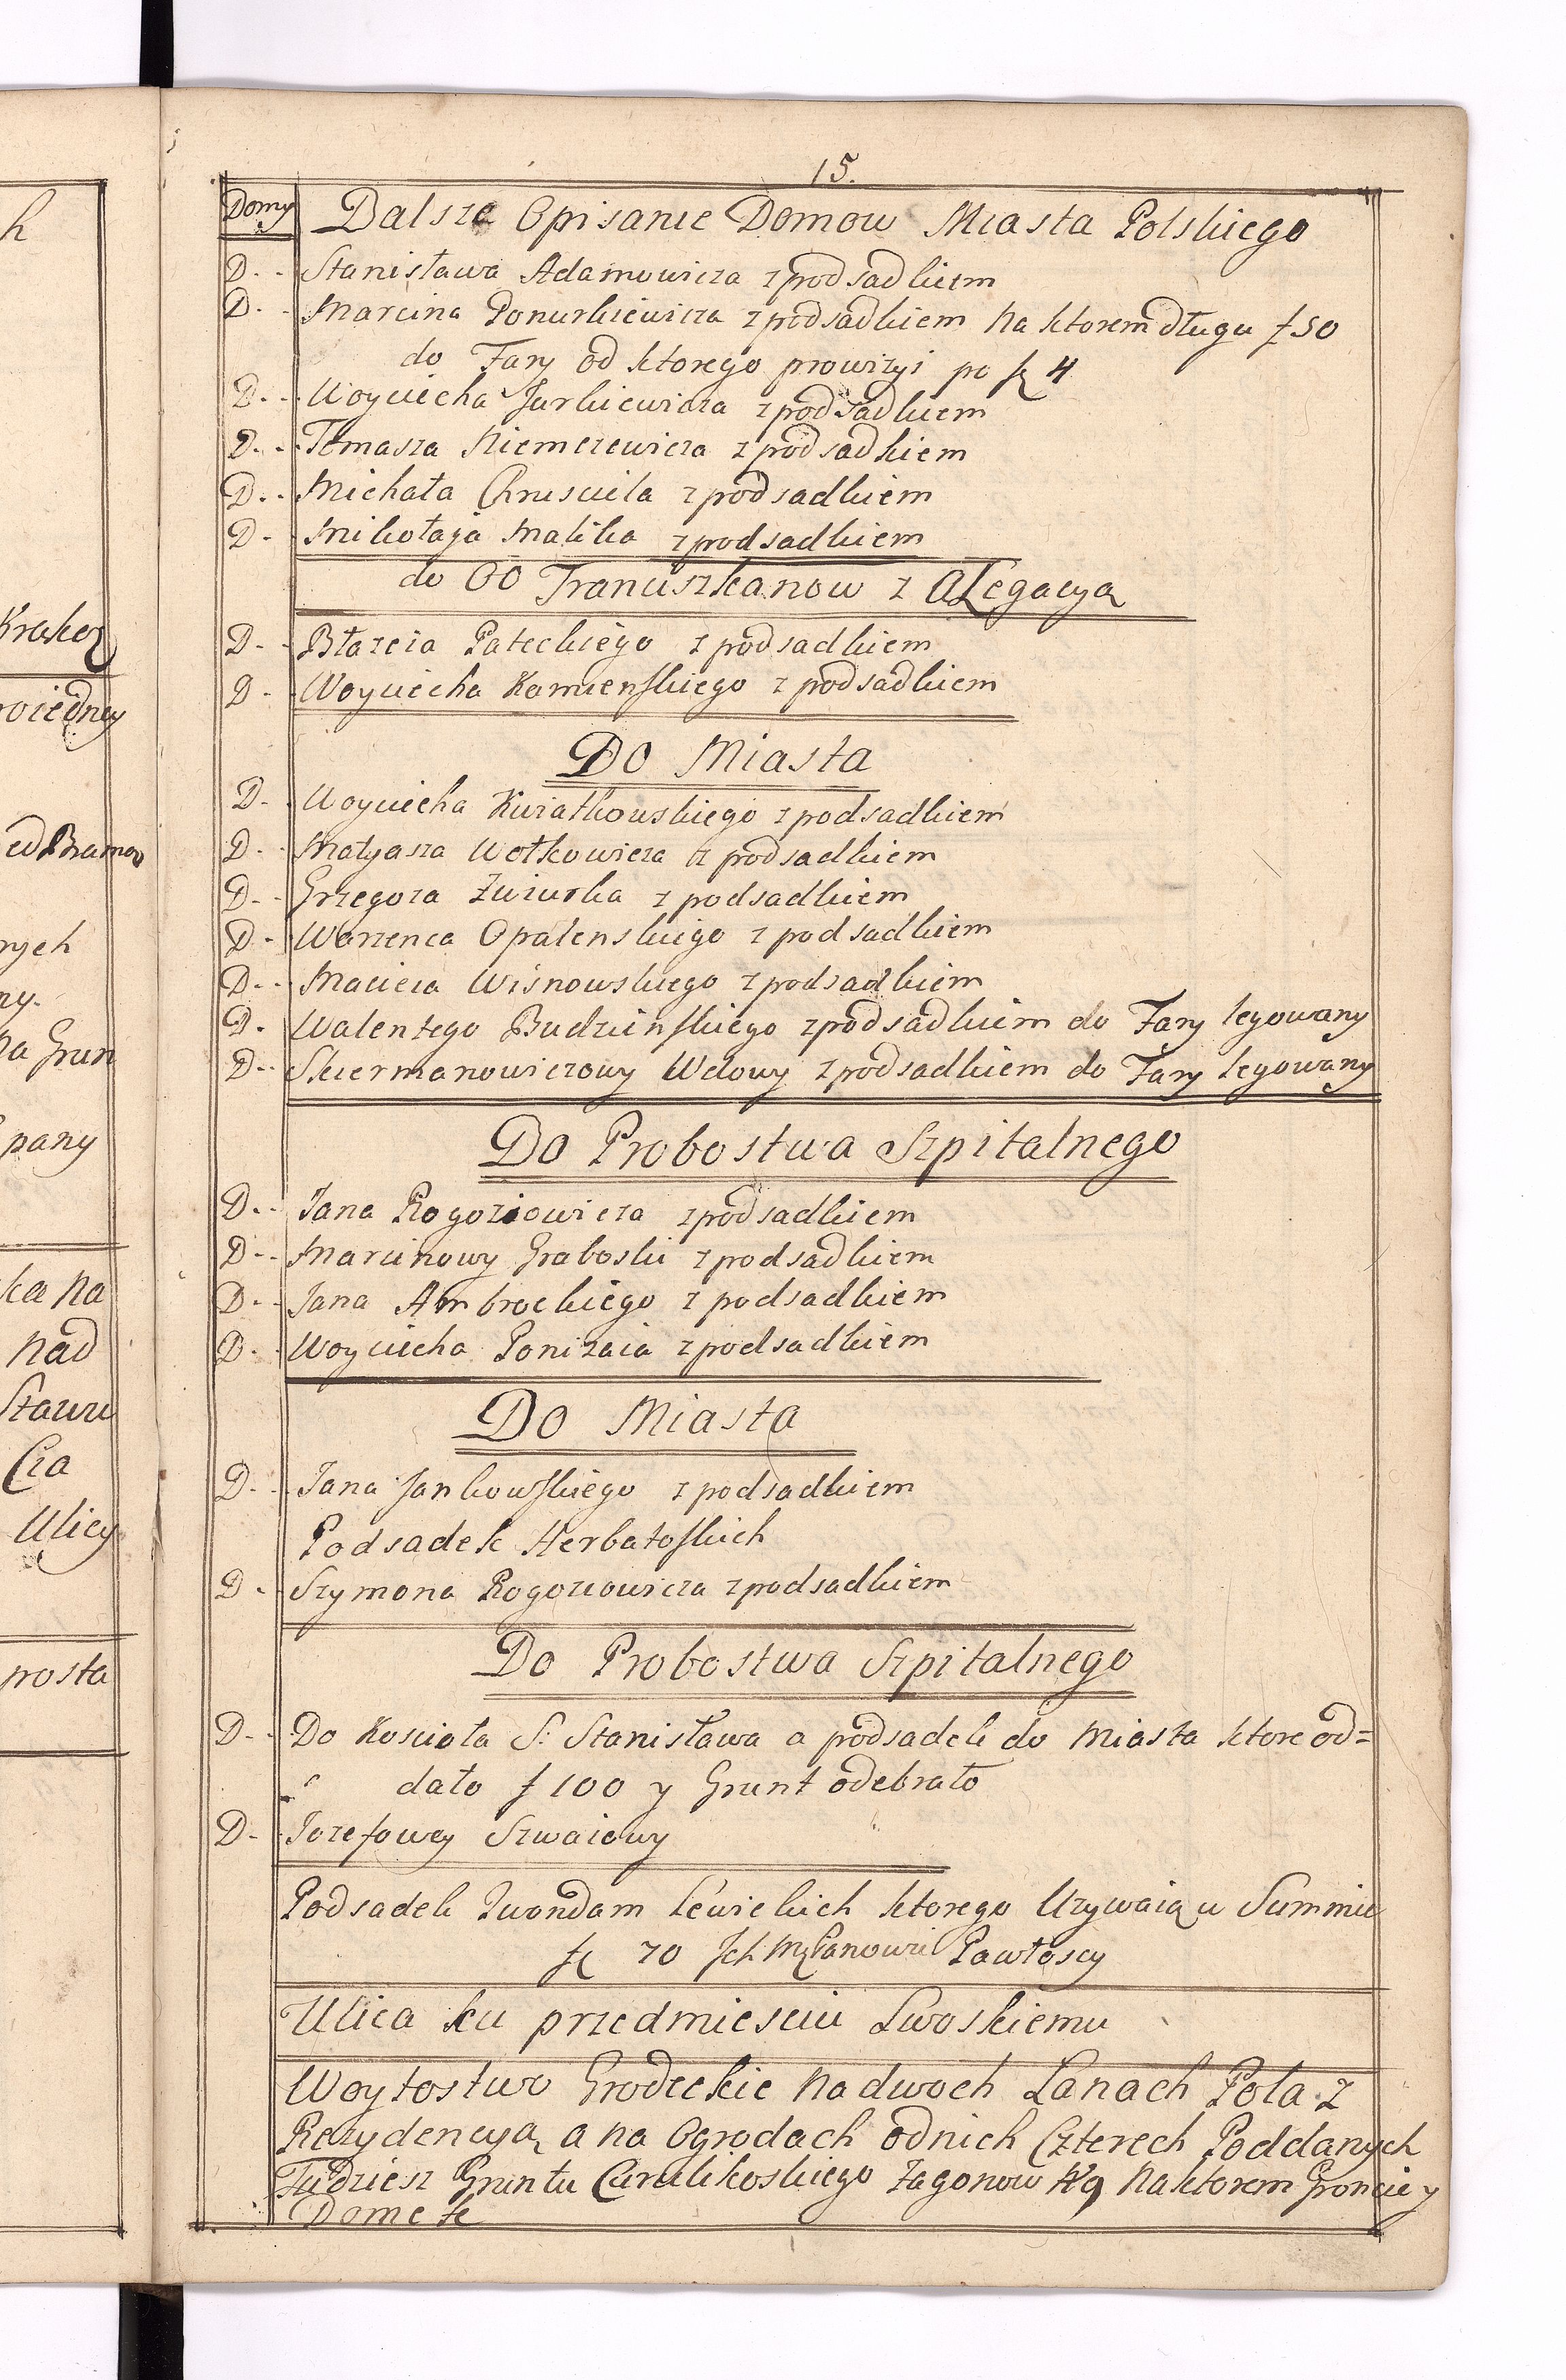 h
Krakoz
woiedney
ed Bramą
nych
ny.
na Grun
pany
ka na
nad
Stawu
Cza
Ulicy
prosta
15.
Domy Dalsze Opisanie Domow Miasta Polskiego
D. - Stanisława Adamowicza z podsadkiem
D. - Marcina Ponurkiewicza z podsadkiem na ktorem długu f 50
do Fary od ktorego prowizyi po f 4
D. - Woyciecha Jurkiewicza z podsadkiem
D. - Tomasza Niemczewicza z podsadkiem
D. - Michała Chruściela z podsadkiem
D - Mikołaja Malika z podsadkiem
do OO Franciszkanow z ALegacyą
D. - Błażeia Pateckiego z podsadkiem
D - Woyciecha Kamienskiego z podsadkiem
Do Miasta
D. - Woyciecha Kwiatkowskiego z podsadkiem
D. - Matyasza Wołkowicza z podsadkiem
D. - Grzegorza Zwiurka z podsadkiem
D - Warzenca Opalenskiego z podsadkiem
D. - Macieia Wisnowskiego z podsadkiem
D. Walentego Budzinskiego z podsadkiem do Fary legowany
D. - Skiermanowiczowy Wdowy z podsadkiem do Fary legowany
Do Probostwa Szpitalnego
D. - Jana Rogoziowicza z podsadkiem
D - - Marcinowy Graboski z podsadkiem
D. - Jana Ambrockiego z podsadkiem
D. - Woyciecha Ponizaia z podsadkiem
Do Miasta
D. - Jana Jankowskiego z podsadkiem
Podsadek Herbatoskich
D - Szymona Rogoziowicza z podsadkiem
Do Probostwa Szpitalnego
D. - Do Kosciola S: Stanisława a podsadek do Miasta ktore od=
dało f 100 y Grunt odebrało
D - Jozefowey Szwaiowy
Podsadek Quondam Lewickich ktorego Uzywaią w Summie
f 70 Ich Mę Panowie Pawłoscy
Ulica ku przedmiesciu Lwoskiemu
Woytostwo Grodeckie na dwoch Lanach Pola z
Rezydencyą a na Ogrodach odnich Czterech Poddanych
Tudziesz Gruntu Carulikoskiego Zagonow N 9 na ktorem Groncie y
Domek